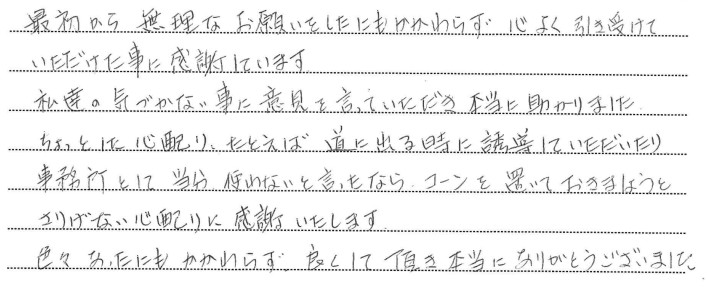 最初から 無理なお願いをしたにもかかわらず 心よく引き受けて
いただけた事に感謝しています
私達の気づかない事に意見を言っていただき本当に助かりました.
ちょっとした心配り、たとえば 道に出る時に誘導していただいたり
事務所として 当分 使わないと言ったなら コーンを 置いておきましょうと
さりげない心配りに 感謝いたします.
色々あったにもかかわらず、良くして 頂き 本当に ありがとうございました.